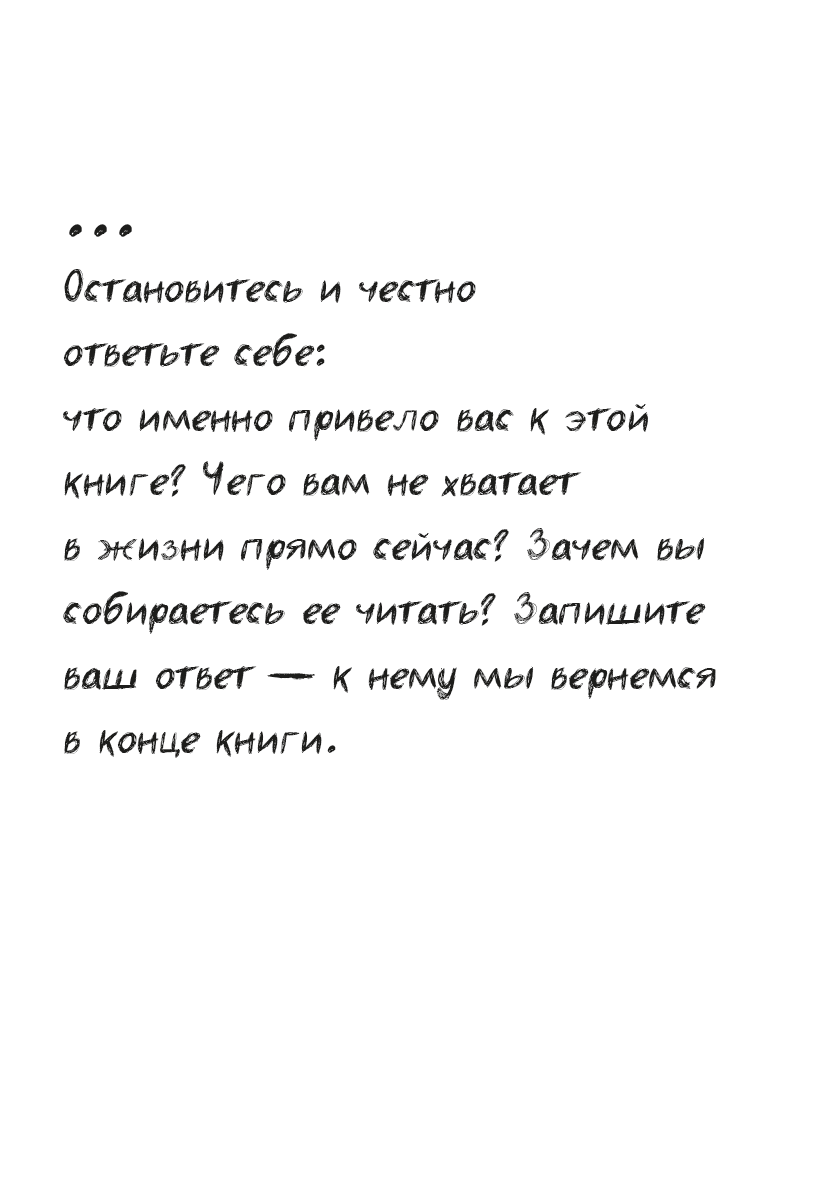 ...
Остановитесь и честно
ответьте себе:
что именно привело вас к этой
книге? Чего вам не хватает
в жизни прямо сейчас? Зачем вы
собираетесь ее читать? Запишите
ваш ответ — к нему мы вернемся
в конце книги.